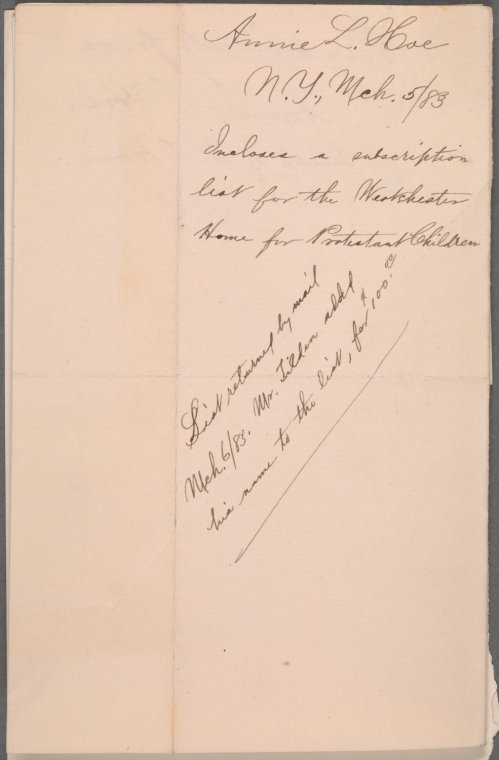 Annie L. Hoe
N.Y., Mch. 5/83
Incloses a subscription
list for the Westchester
Home for Protestant Children
List returned by mail
Mch. 6/83. Mr. Tilden add'd
his name to the list, for $100.00